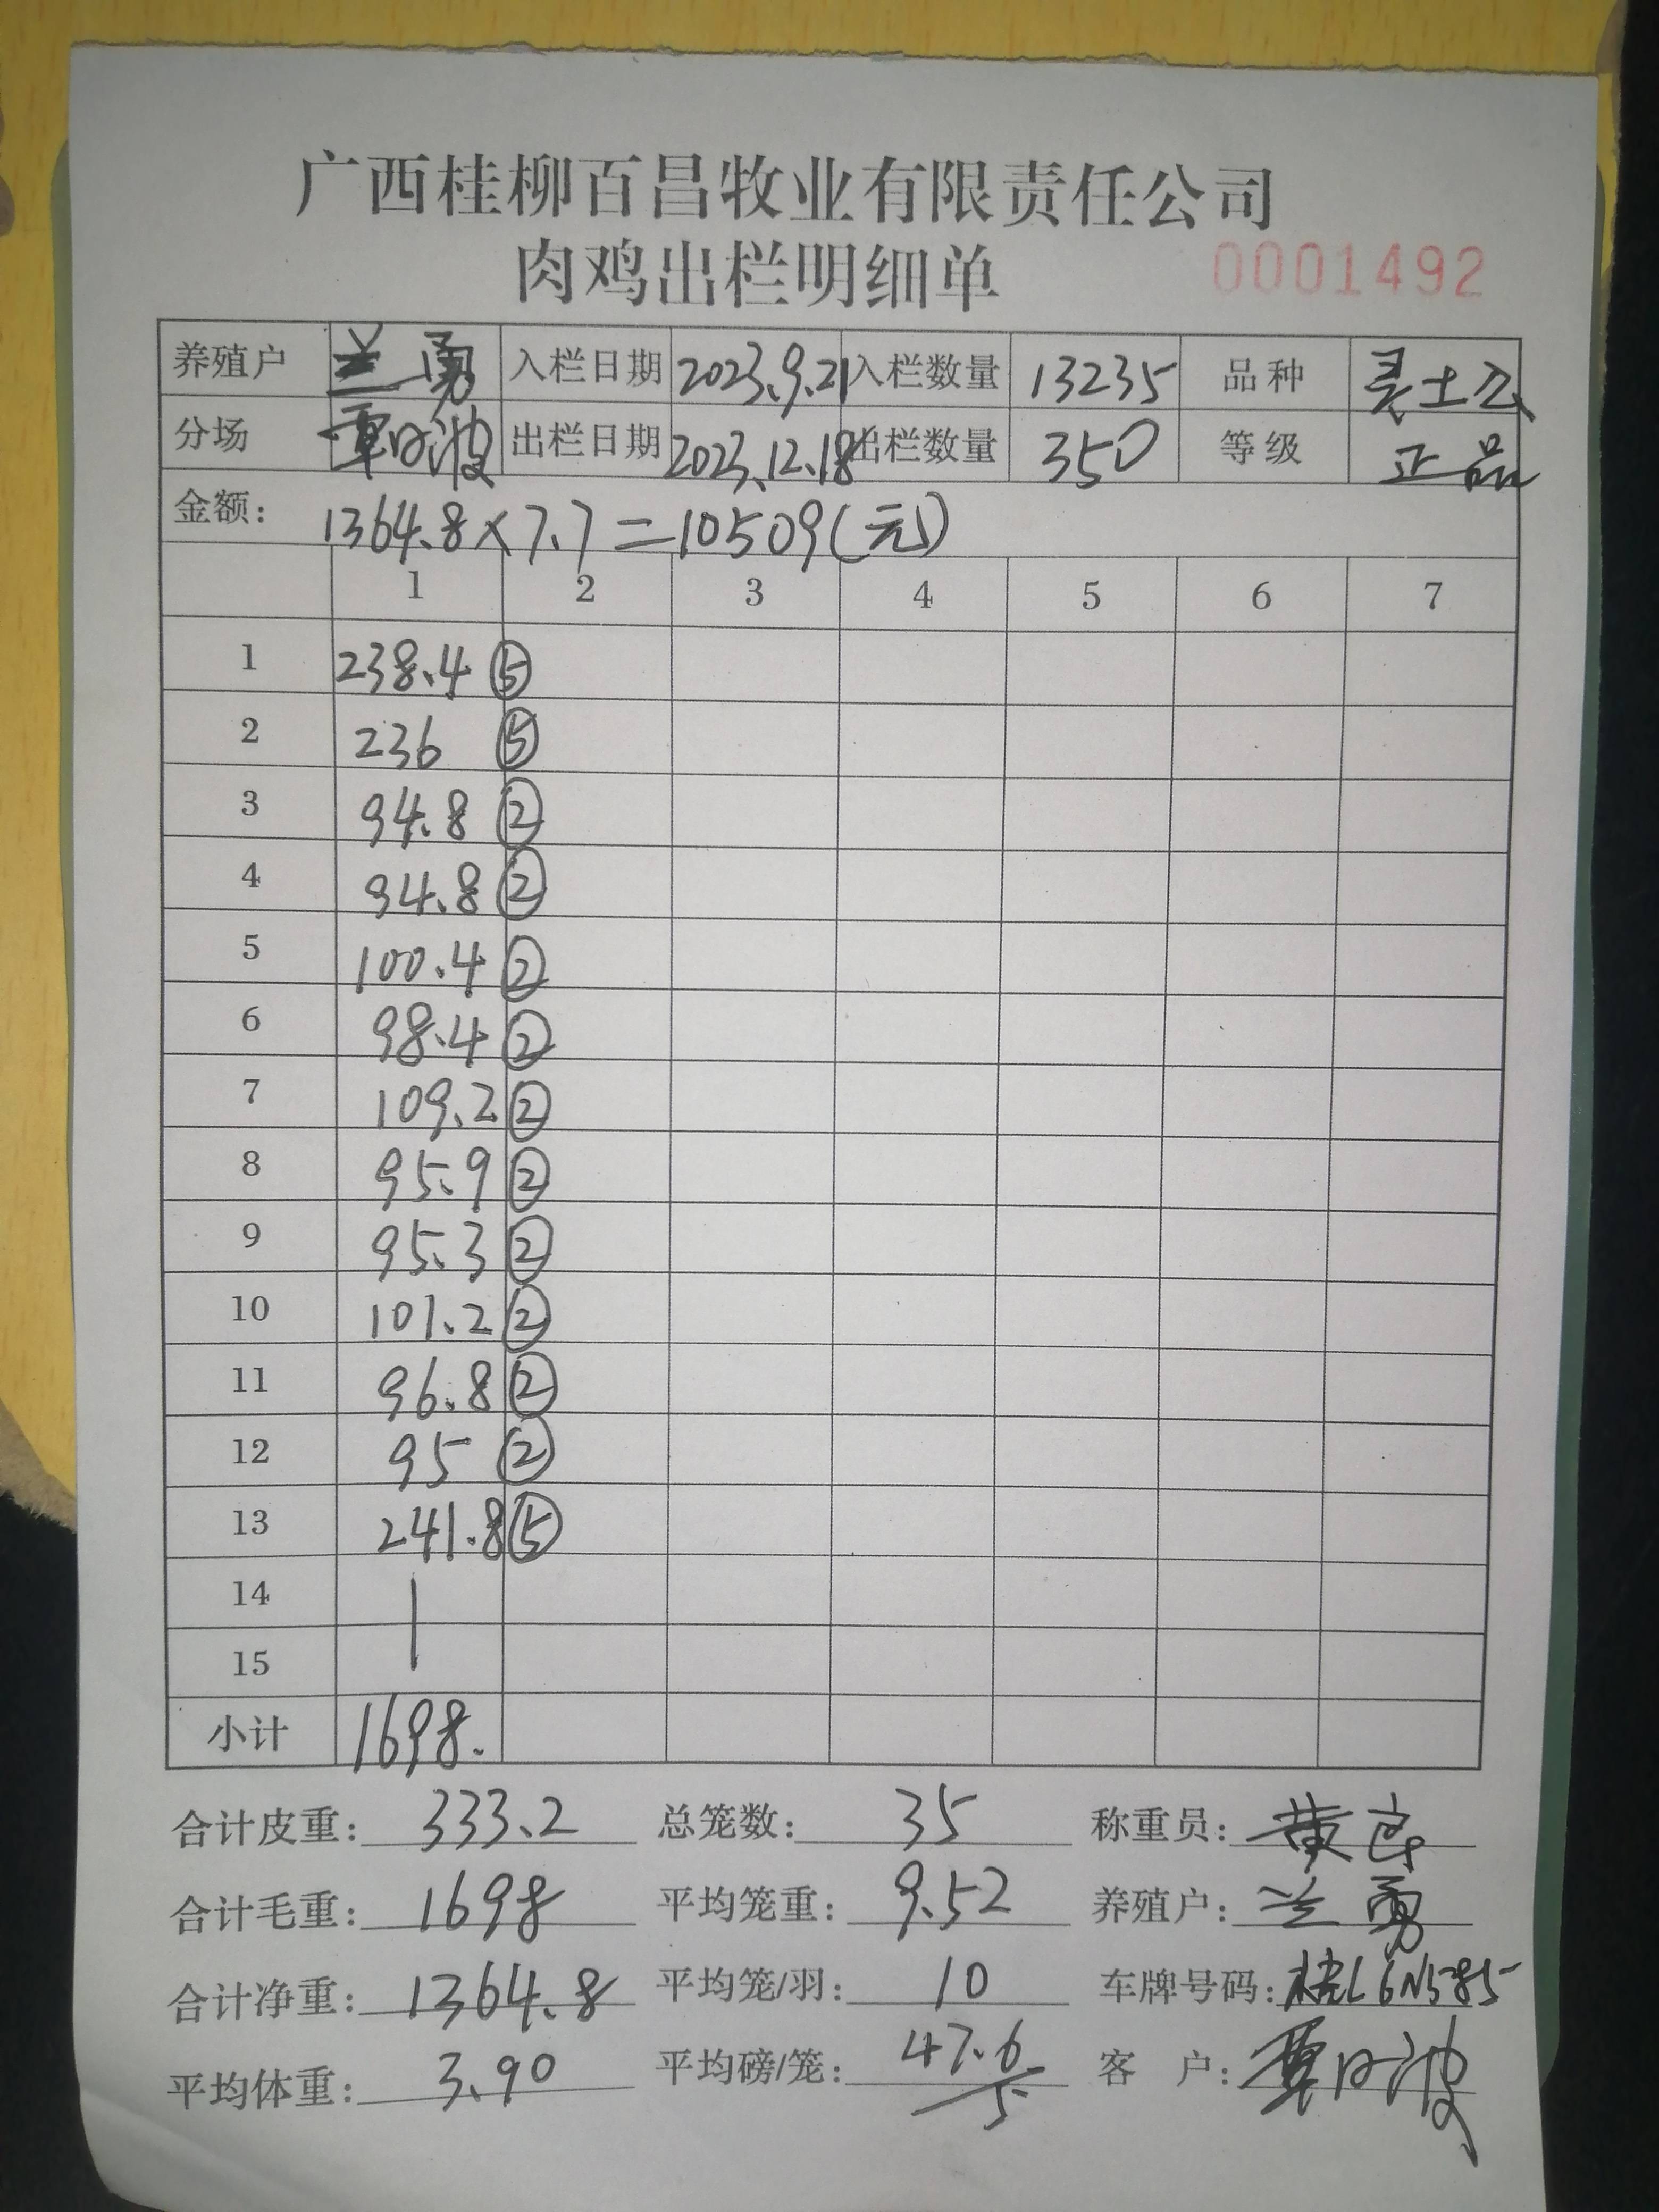 广西桂柳百昌牧业有限责任公司
肉鸡出栏明细单 0001492
养殖户 兰勇 入栏日期 2023.9.21 入栏数量 13235 品种 灵土公
分场 覃日波 出栏日期 2023.12.18 出栏数量 350 等级 正品
金额: 1364.8×7.7=10509(元)
1 2 3 4 5 6 7
1 238.4 ⑤
2 236 ⑤
3 94.8 ②
4 94.8 ②
5 100.4 ②
6 98.4 ②
7 109.2 ②
8 95.9 ②
9 95.3 ②
10 101.2 ②
11 96.8 ②
12 95 ②
13 241.8 ⑤
14
15
小计 1698.
合计皮重: 333.2 总笼数: 35 称重员: 黄
合计毛重: 1698 平均笼重: 9.52 养殖户: 兰勇
合计净重: 1364.8 平均笼/羽: 10 车牌号码: 桂L6N585
平均体重: 3.90 平均磅/笼: 47.6/5 客户: 覃日波